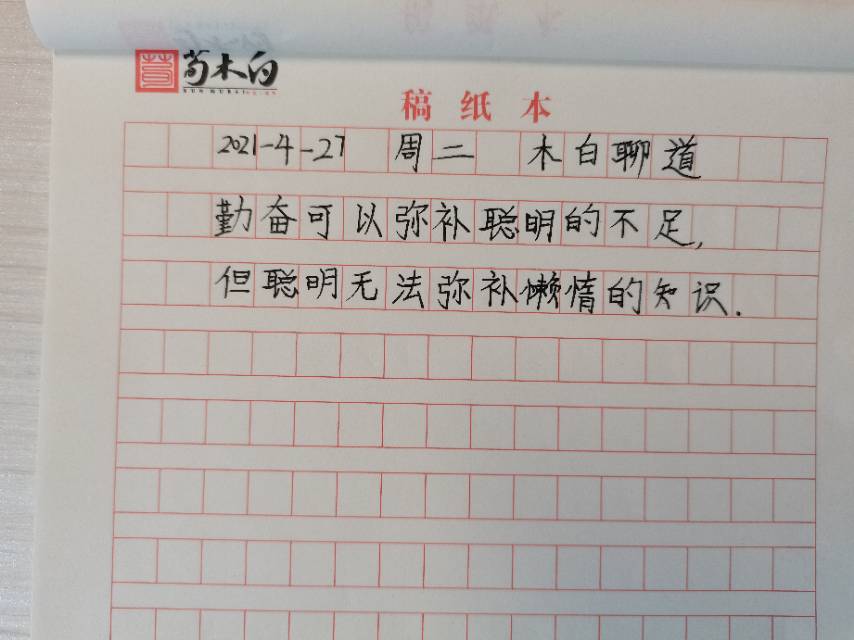 荀木白
稿纸本
2021-4-27 周二 木白聊道
勤奋可以弥补聪明的不足,
但聪明无法弥补懒惰的知识.